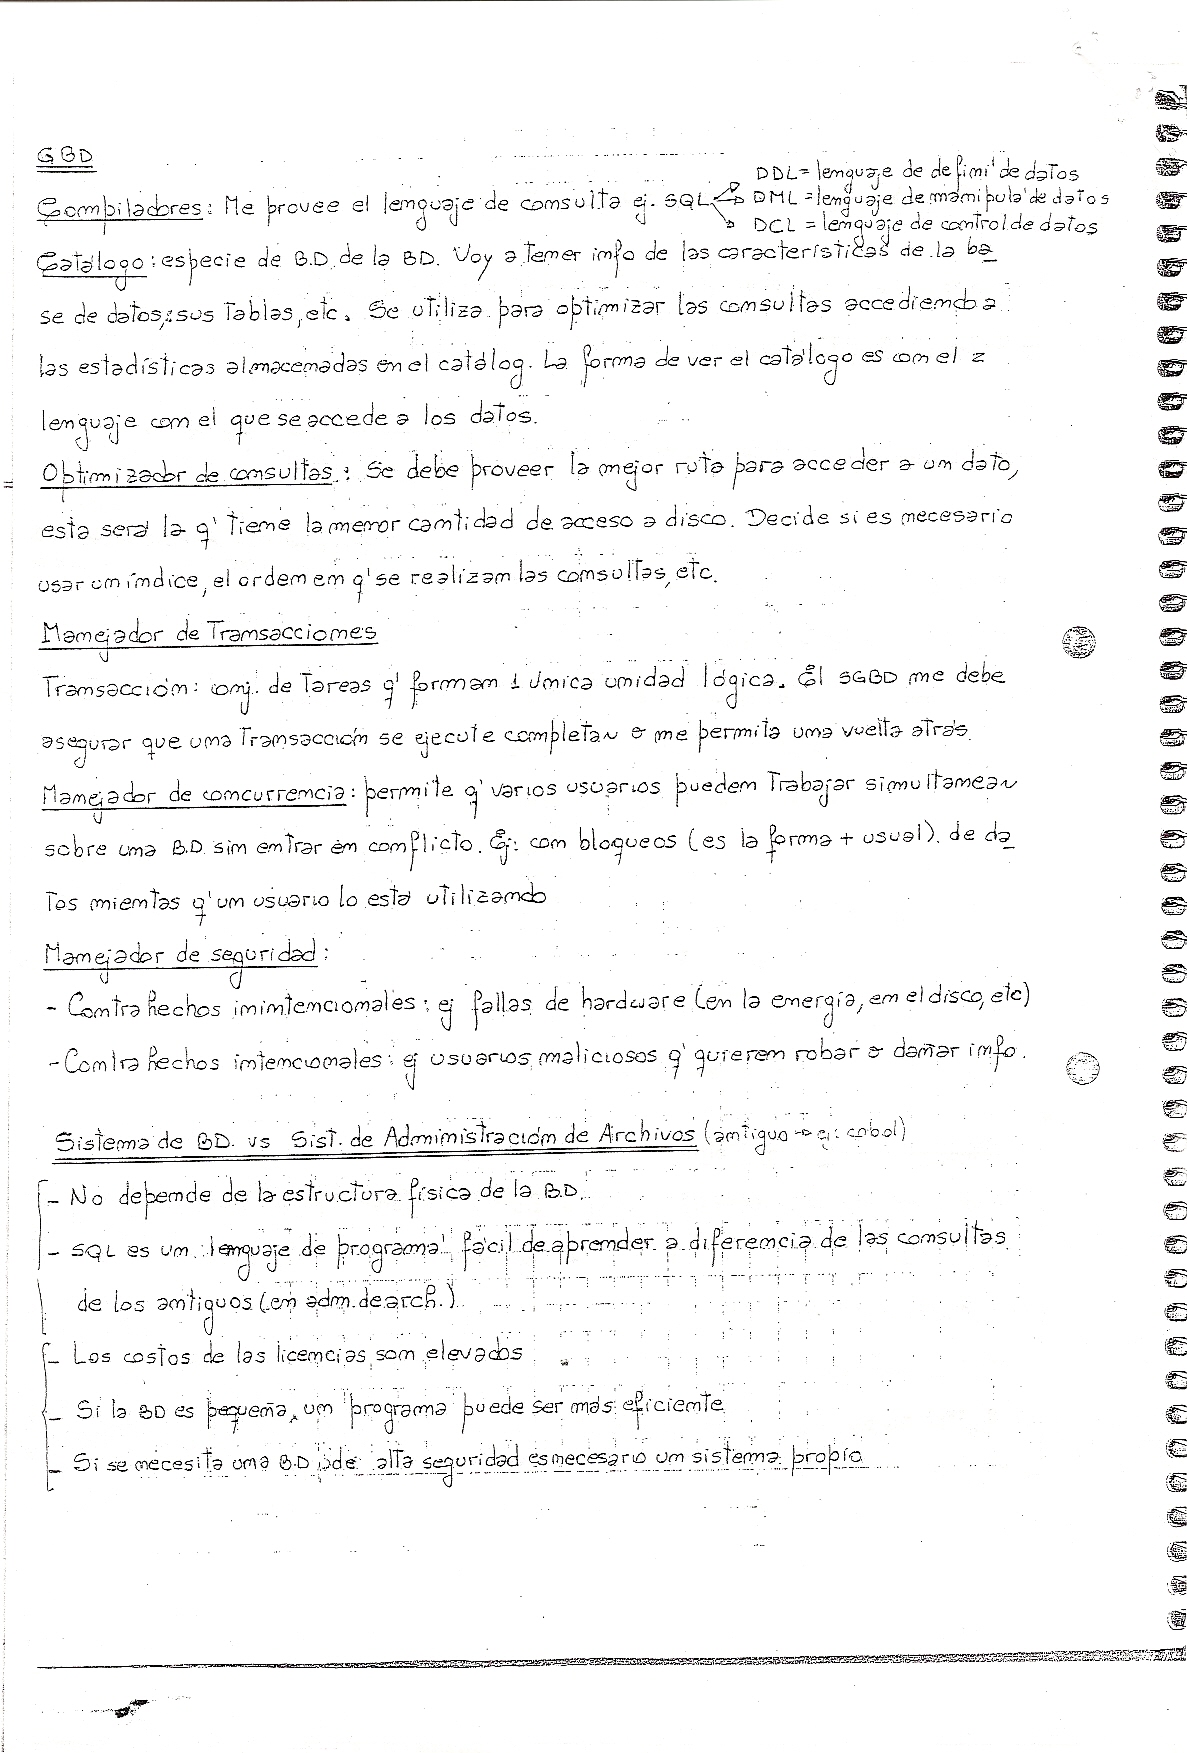 GBD
DDL = lenguaje de defini' de datos
Compiladores: Me provee el lenguaje de consulta ej. SQL → DML = lenguaje de manipula' de datos
DCL = lenguaje de control de datos
Catálogo: especie de B.D. de la BD. Voy a tener info de las características de la ba
se de datos, sus tablas, etc. Se utiliza para optimizar las consultas accediendo a
las estadísticas almacenadas en el catálog. La forma de ver el catálogo es con el
lenguaje con el que se accede a los datos.
Optimizador de consultas: Se debe proveer la mejor ruta para acceder a un dato,
esta será la q' tiene la menor cantidad de acceso a disco. Decide si es necesario
usar un índice, el orden en q' se realizan las consultas, etc.
Manejador de Transacciones
Transacción: conj. de tareas q' forman 1 única unidad lógica. El SGBD me debe
asegurar que una transacción se ejecute completa~ o me permita una vuelta atrás.
Manejador de concurrencia: permite q' varios usuarios pueden trabajar simultanea~
sobre una B.D. sin entrar en conflicto. Ej: con bloqueos (es la forma + usual). de da
tos mientas q' un usuario lo está utilizando
Manejador de seguridad:
- Contra hechos inintencionales: ej fallas de hardware (en la energía, en el disco, etc)
- Contra hechos intencionales: ej usuarios maliciosos q' quieren robar o dañar info.
Sistema de BD. vs Sist. de Administración de Archivos (antiguo → ej: cobol)
- No depende de la estructura física de la B.D.
- SQL es un lenguaje de programa' fácil de aprender a diferencia de las consultas
de los antiguos (en adm. de arch.)
- Los costos de las licencias son elevados
- Si la BD es pequeña, un programa puede ser más eficiente
- Si se necesita una B.D de alta seguridad es necesario un sistema propio